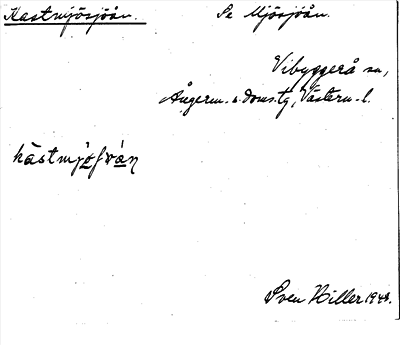 Kastmjösjöån. Se Mjösjöån.
Vibyggerå sn,
Ångerm. s. doms.tg, Västern. l.
kàstmjösʃɷàn
Sven Hiller 1948.